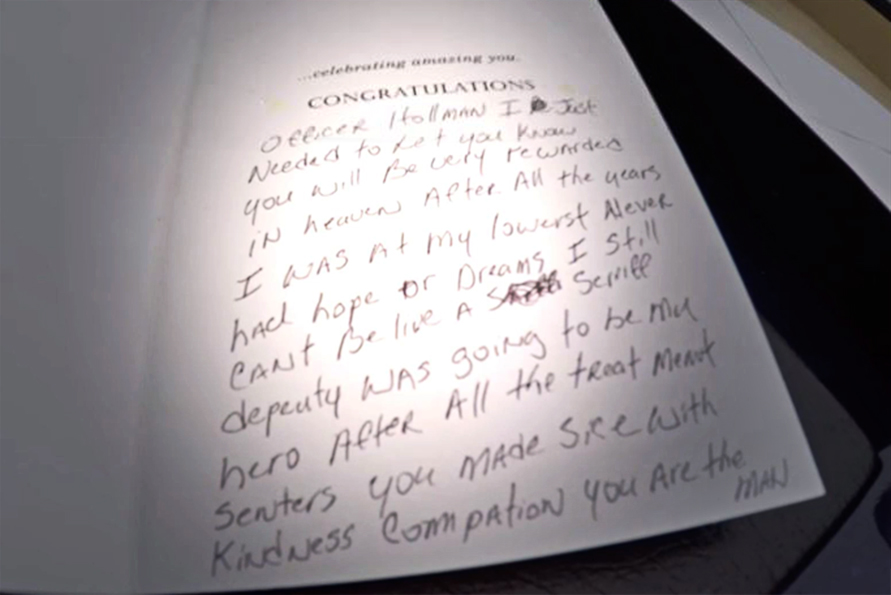 ...celebrating amazing you.
CONGRATULATIONS
OfficeR HollMAN I Just
Needed to Let you Know
you will Be very rewarded
iN heaven After All the years
I WAS At my lowest Never
had hope or Dreams I Still
CANt Be live A Serriff
depeuty WAS going to be my
hero After All the treat ment
senters you MAde SRe with
Kindness Compation you Are the
MAN